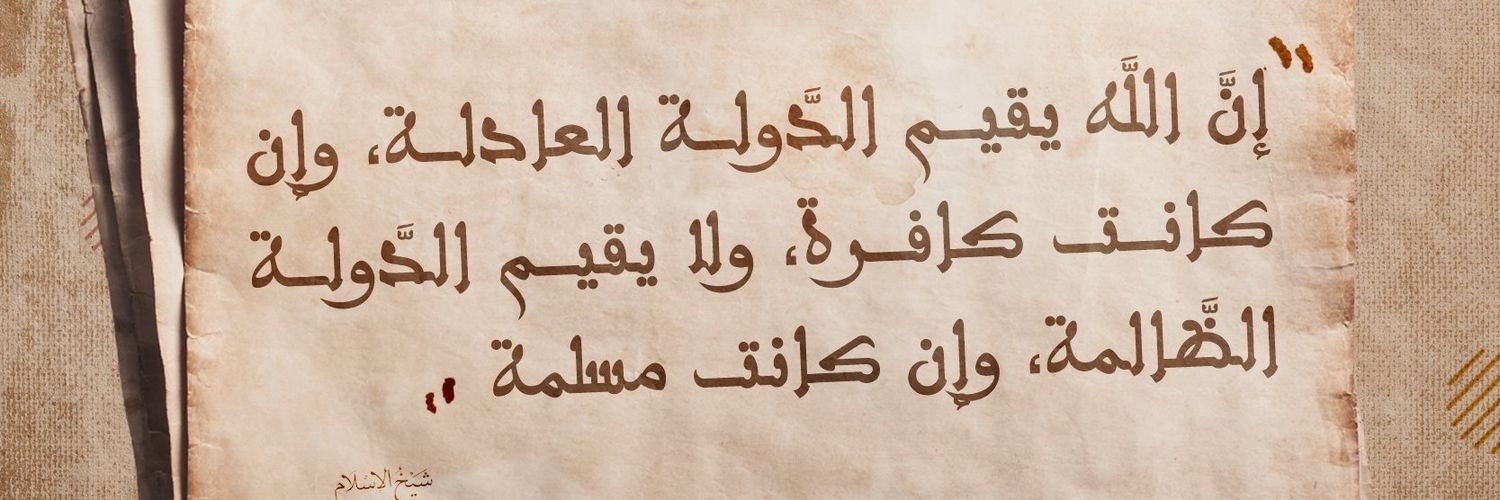 "إنَّ اللَّه يقيـم الدَّولـة العادلـة، وإن
كانـتـ كافـرة، ولا يقيـم الدَّولـة
الظَّالمة، وإن كانتـ مسلمة "
شَيْخُ الإسْلَام